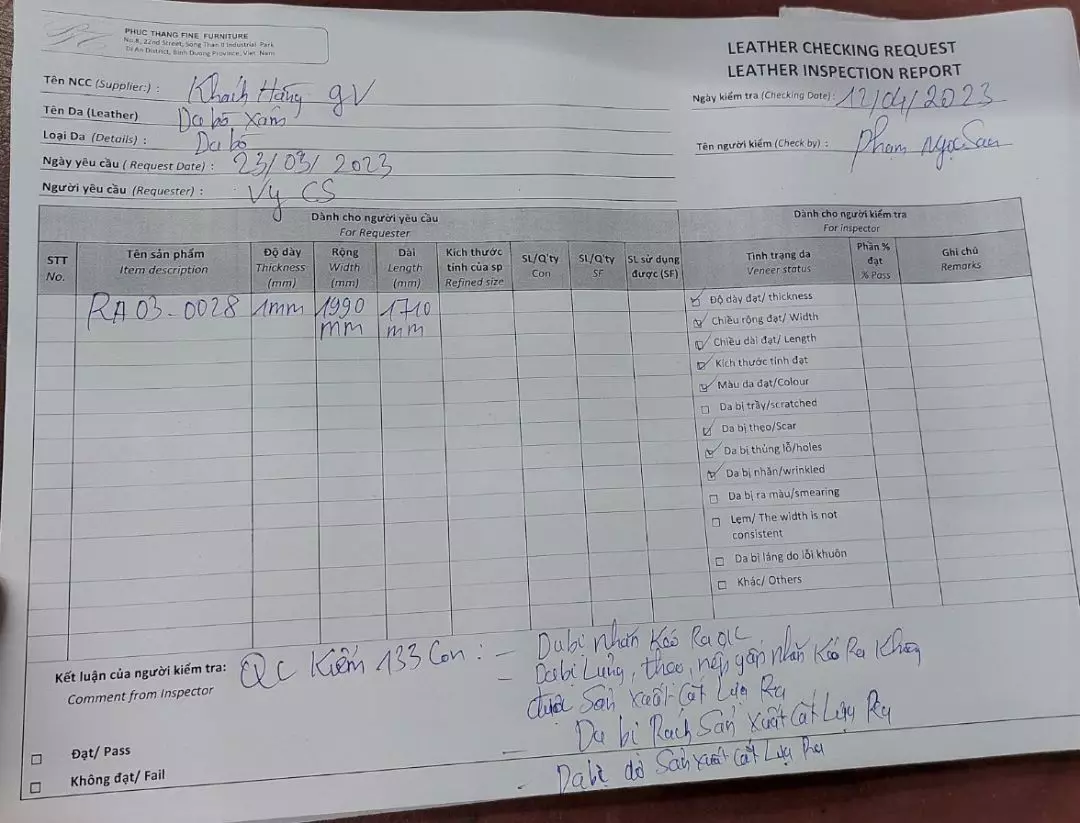 PHUC THANG FINE FURNITURE
No.8, 22nd Street, Song Than II Industrial Park
Di An District, Binh Duong Province, Viet Nam
LEATHER CHECKING REQUEST
LEATHER INSPECTION REPORT
Tên NCC (Supplier:) : Khách Hàng GV
Ngày kiểm tra (Checking Date) : 12/04/2023
Tên Da (Leather) Da bò xám
Loại Da (Details) : Da bò
Tên người kiểm (Check by) : Phạm Ngọc San
Ngày yêu cầu ( Request Date) : 23/03/2023
Người yêu cầu (Requester) : Vy CS
Dành cho người yêu cầu
For Requester
Dành cho người kiểm tra
For inspector
STT
No.
Tên sản phẩm
Item description
Độ dày
Thickness
(mm)
Rộng
Width
(mm)
Dài
Length
(mm)
Kích thước
tinh của sp
Refined size
SL/Q'ty
Con
SL/Q'ty
SF
SL sử dụng
được (SF)
Tình trạng da
Veneer status
Phần %
đạt
% Pass
Ghi chú
Remarks
RA03-0028 1mm 1990 mm 1710 mm
Độ dày đạt/ thickness
Chiều rộng đạt/ Width
Chiều dài đạt/ Length
Kích thước tinh đạt
Màu da đạt/Colour
Da bị trầy/scratched
Da bị thẹo/Scar
Da bị thủng lỗ/holes
Da bị nhăn/wrinkled
Da bị ra màu/smearing
Lẹm/ The width is not
consistent
Da bị láng do lỗi khuôn
Khác/ Others
Kết luận của người kiểm tra:
Comment from Inspector
QC Kiểm 133 Con : - Da bị nhăn Kéo Ra
- Da bị Lủng, thẹo, nếp gấp nhăn Kéo Ra Không
được Sản xuất Cắt Lựa Ra
- Da bị Rách Sản xuất Cắt Lựa Ra
- Da bị dơ Sản xuất Cắt Lựa Ra
Đạt/ Pass
Không đạt/ Fail